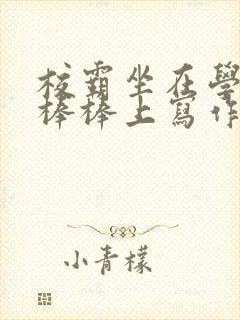 校霸坐在學
棒棒上寫作
小青檬